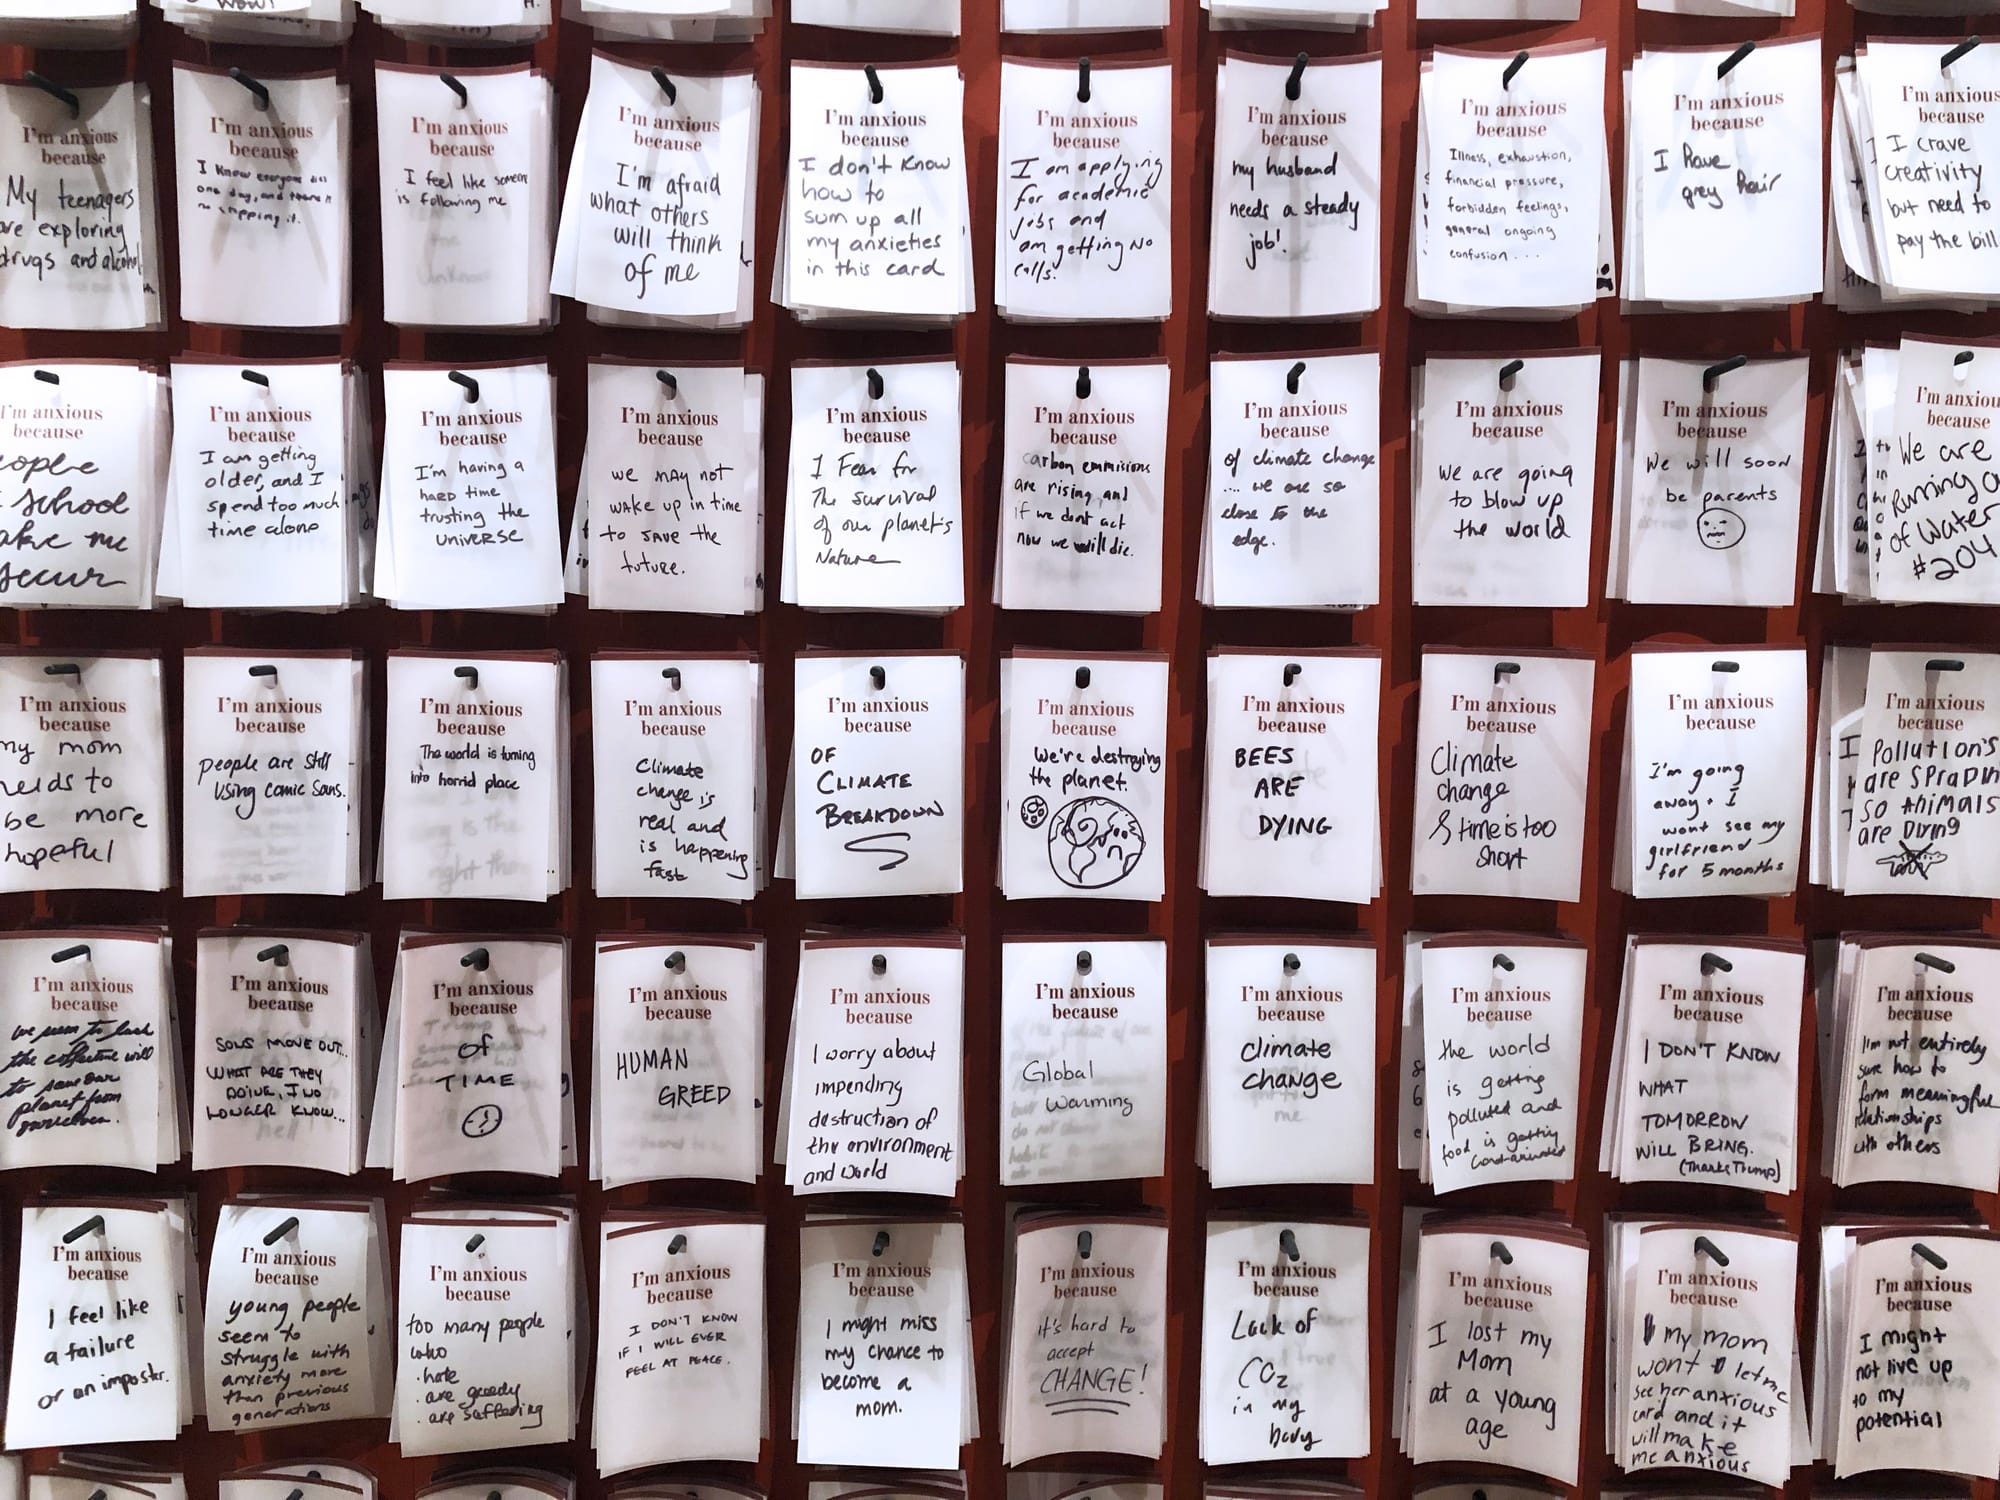 wow!
I'm anxious
because
My teenagers
are exploring
drugs and alcohol
I'm anxious
because
I know everyone dies
one day, and there's
no stopping it.
I'm anxious
because
I feel like someone
is following me
I'm anxious
because
I'm afraid
what others
will think
of me
I'm anxious
because
I don't know
how to
sum up all
my anxieties
in this card
I'm anxious
because
I am applying
for academic
jobs and
am getting NO
calls.
I'm anxious
because
my husband
needs a steady
job!
I'm anxious
because
Illness, exhaustion,
financial pressure,
forbidden feelings,
general ongoing
confusion...
I'm anxious
because
I have
grey hair
I'm anxious
because
I crave
creativity
but need to
pay the bill
I'm anxious
because
eople
school
ake me
secur
I'm anxious
because
I am getting
older, and I
spend too much
time alone
I'm anxious
because
I'm having a
HARD time
trusting the
UNIVERSE
I'm anxious
because
we may not
wake up in time
to save the
future.
I'm anxious
because
I Fear for
The survival
of our planet's
Nature
I'm anxious
because
carbon emmisions
are rising and
if we dont act
now we will die.
I'm anxious
because
of climate change
.... we are so
close to the
edge.
I'm anxious
because
we are going
to blow up
the world
I'm anxious
because
We will soon
be parents
I'm anxiou
because
We are
Running o
of Water
#204
I'm anxious
because
my mom
needs to
be more
hopeful
I'm anxious
because
people are still
using comic sans.
I'm anxious
because
The world is turning
into horrid place
I'm anxious
because
Climate
change is
real and
is happening
fast
I'm anxious
because
OF
CLIMATE
BREAKDOWN
I'm anxious
because
We're destroying
the planet.
I'm anxious
because
BEES
ARE
DYING
I'm anxious
because
Climate
change
& time is too
short
I'm anxious
because
I'm going
away. I
wont see my
girlfriend
for 5 months
I'm anxious
because
Pollution's
are spradin
so Animals
are Diying
I'm anxious
because
we seem to lack
the collective will
to save our
planet from
ourselves.
I'm anxious
because
SONS MOVE OUT...
WHAT ARE THEY
DOING, I NO
LONGER KNOW...
I'm anxious
because
OF
TIME
I'm anxious
because
HUMAN
GREED
I'm anxious
because
I worry about
impending
destruction of
the environment
and world
I'm anxious
because
Global
Warming
I'm anxious
because
climate
change
I'm anxious
because
the world
is getting
polluted and
food is getting
contaminated
I'm anxious
because
I DON'T KNOW
WHAT
TOMORROW
WILL BRING.
(Thanks Trump)
I'm anxious
because
I'm not entirely
sure how to
form meaningful
relationships
with others
I'm anxious
because
I feel like
a failure
or an imposter.
I'm anxious
because
young people
seem to
struggle with
anxiety more
than previous
generations
I'm anxious
because
too many people
who
. hate
. are greedy
. are suffering
I'm anxious
because
I DON'T KNOW
IF I WILL EVER
FEEL AT PEACE.
I'm anxious
because
I might miss
my chance to
become a
mom.
I'm anxious
because
It's hard to
accept
CHANGE!
I'm anxious
because
Lack of
CO2
in my
body
I'm anxious
because
I lost my
Mom
at a young
age
I'm anxious
because
My mom
wont let me
see her anxious
card and it
will make
me anxious
I'm anxious
because
I might
not live up
to my
potential